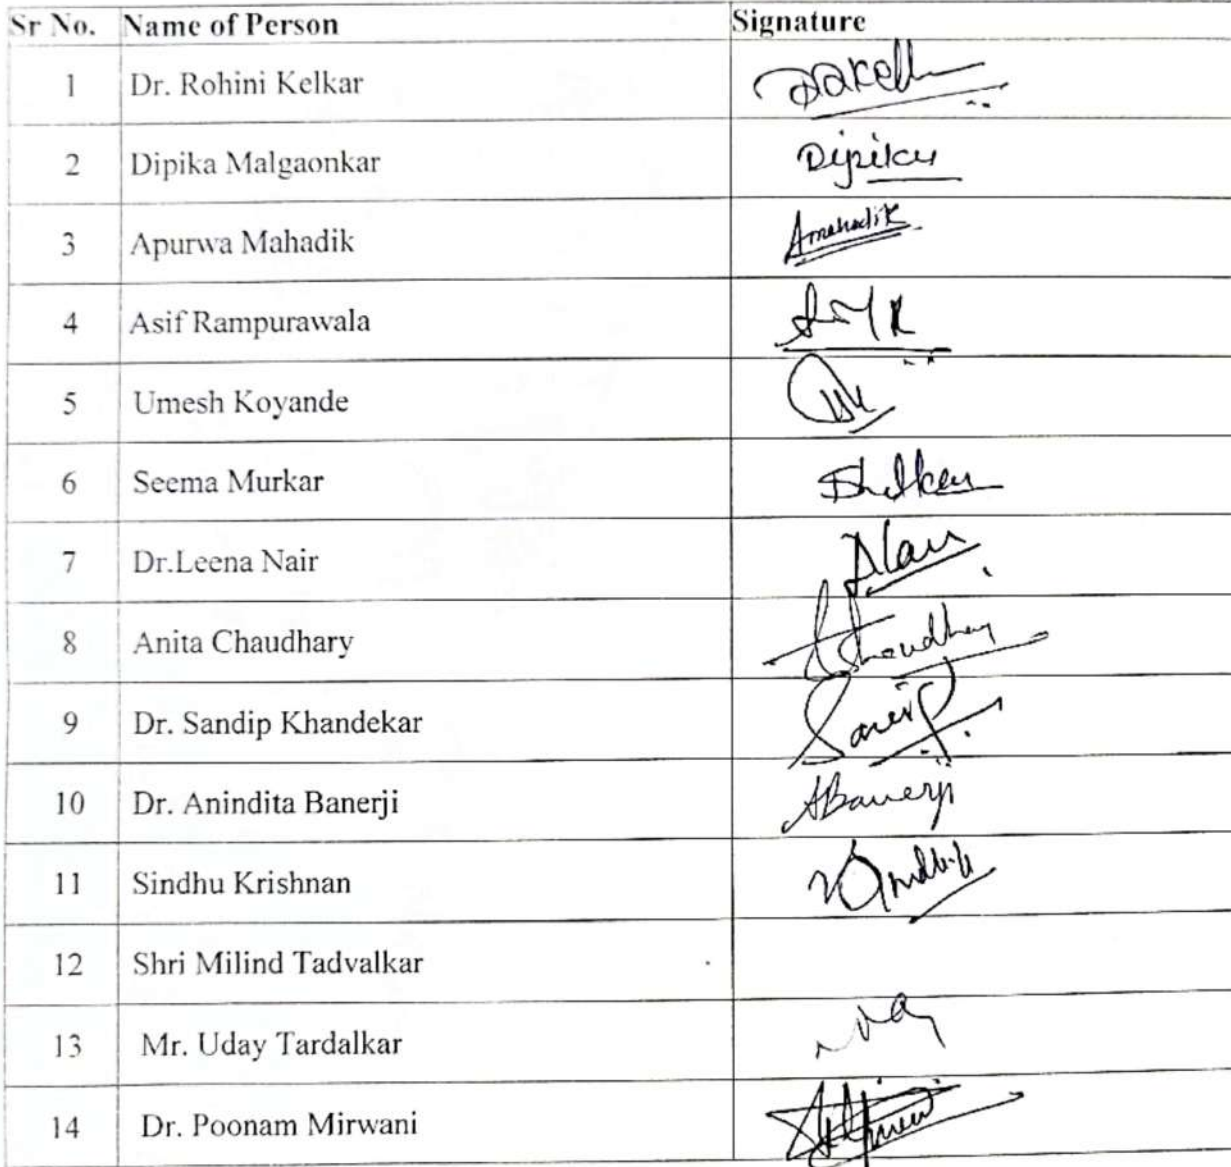 Sr No. Name of Person Signature
1 Dr. Rohini Kelkar
2 Dipika Malgaonkar Dipika
3 Apurwa Mahadik Amahadik
4 Asif Rampurawala
5 Umesh Koyande
6 Seema Murkar
7 Dr.Leena Nair
8 Anita Chaudhary AChaudhary
9 Dr. Sandip Khandekar
10 Dr. Anindita Banerji ABanerji
11 Sindhu Krishnan
12 Shri Milind Tadvalkar
13 Mr. Uday Tardalkar
14 Dr. Poonam Mirwani